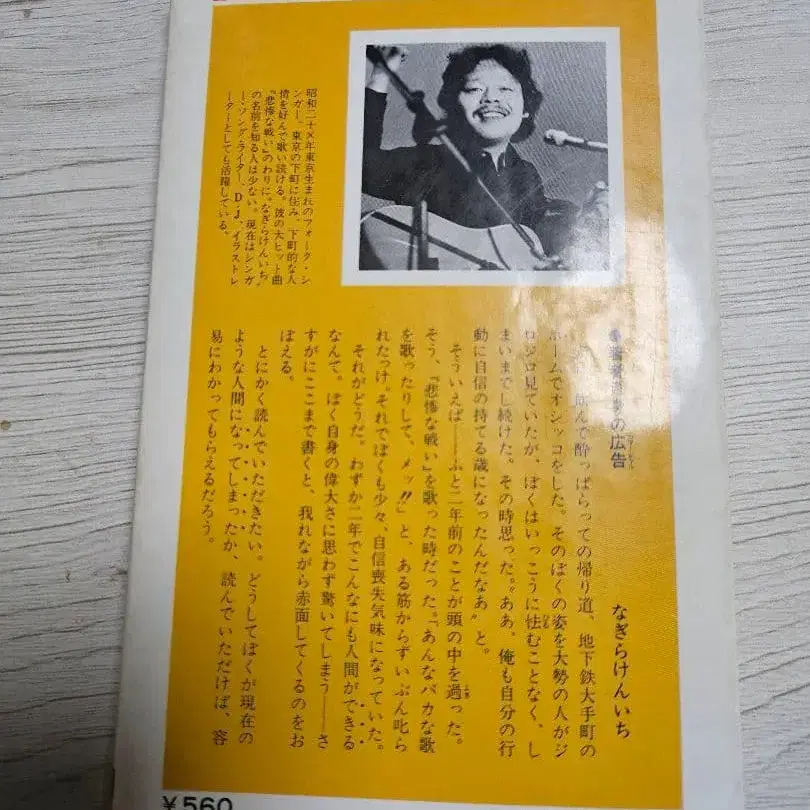 昭和二十×年東京生まれのフォーク・シ
ンガー。東京の下町に住み、下町的な人
情を好んで歌い続ける。彼の大ヒット曲
『悲惨な戦い』のわりに、“なぎらけんいち”
の名前を知る人は少ない。現在はシンガ
ー、ソング・ライター、DJ、イラストレ
ーターとしても活躍している。
の広告
なぎらけんいち
飲んで酔っぱらっての帰り道、地下鉄大手町の
ホームでオシッコをした。そのぼくの姿を大勢の人がジ
ロジロ見ていたが、ぼくはいっこうに怯むことなく、し
まいまでし続けた。その時思った。“ああ、俺も自分の行
動に自信の持てる歳になったんだなあ”と。
そういえば――ふと二年前のことが頭の中を過った。
そう、『悲惨な戦い』を歌った時だった。「あんなバカな歌
を歌ったりして、メッ!!」と、ある筋からずいぶん叱ら
れたっけ。それでぼくも少々、自信喪失気味になっていた。
それがどうだ。わずか二年でこんなにも人間ができる
なんて。ぼく自身の偉大さに思わず驚いてしまう――さ
すがにここまで書くと、我れながら赤面してくるのをお
ぼえる。
とにかく読んでいただきたい。どうしてぼくが現在の
ような人間になってしまったか、読んでいただけば、容
易にわかってもらえるだろう。
¥560